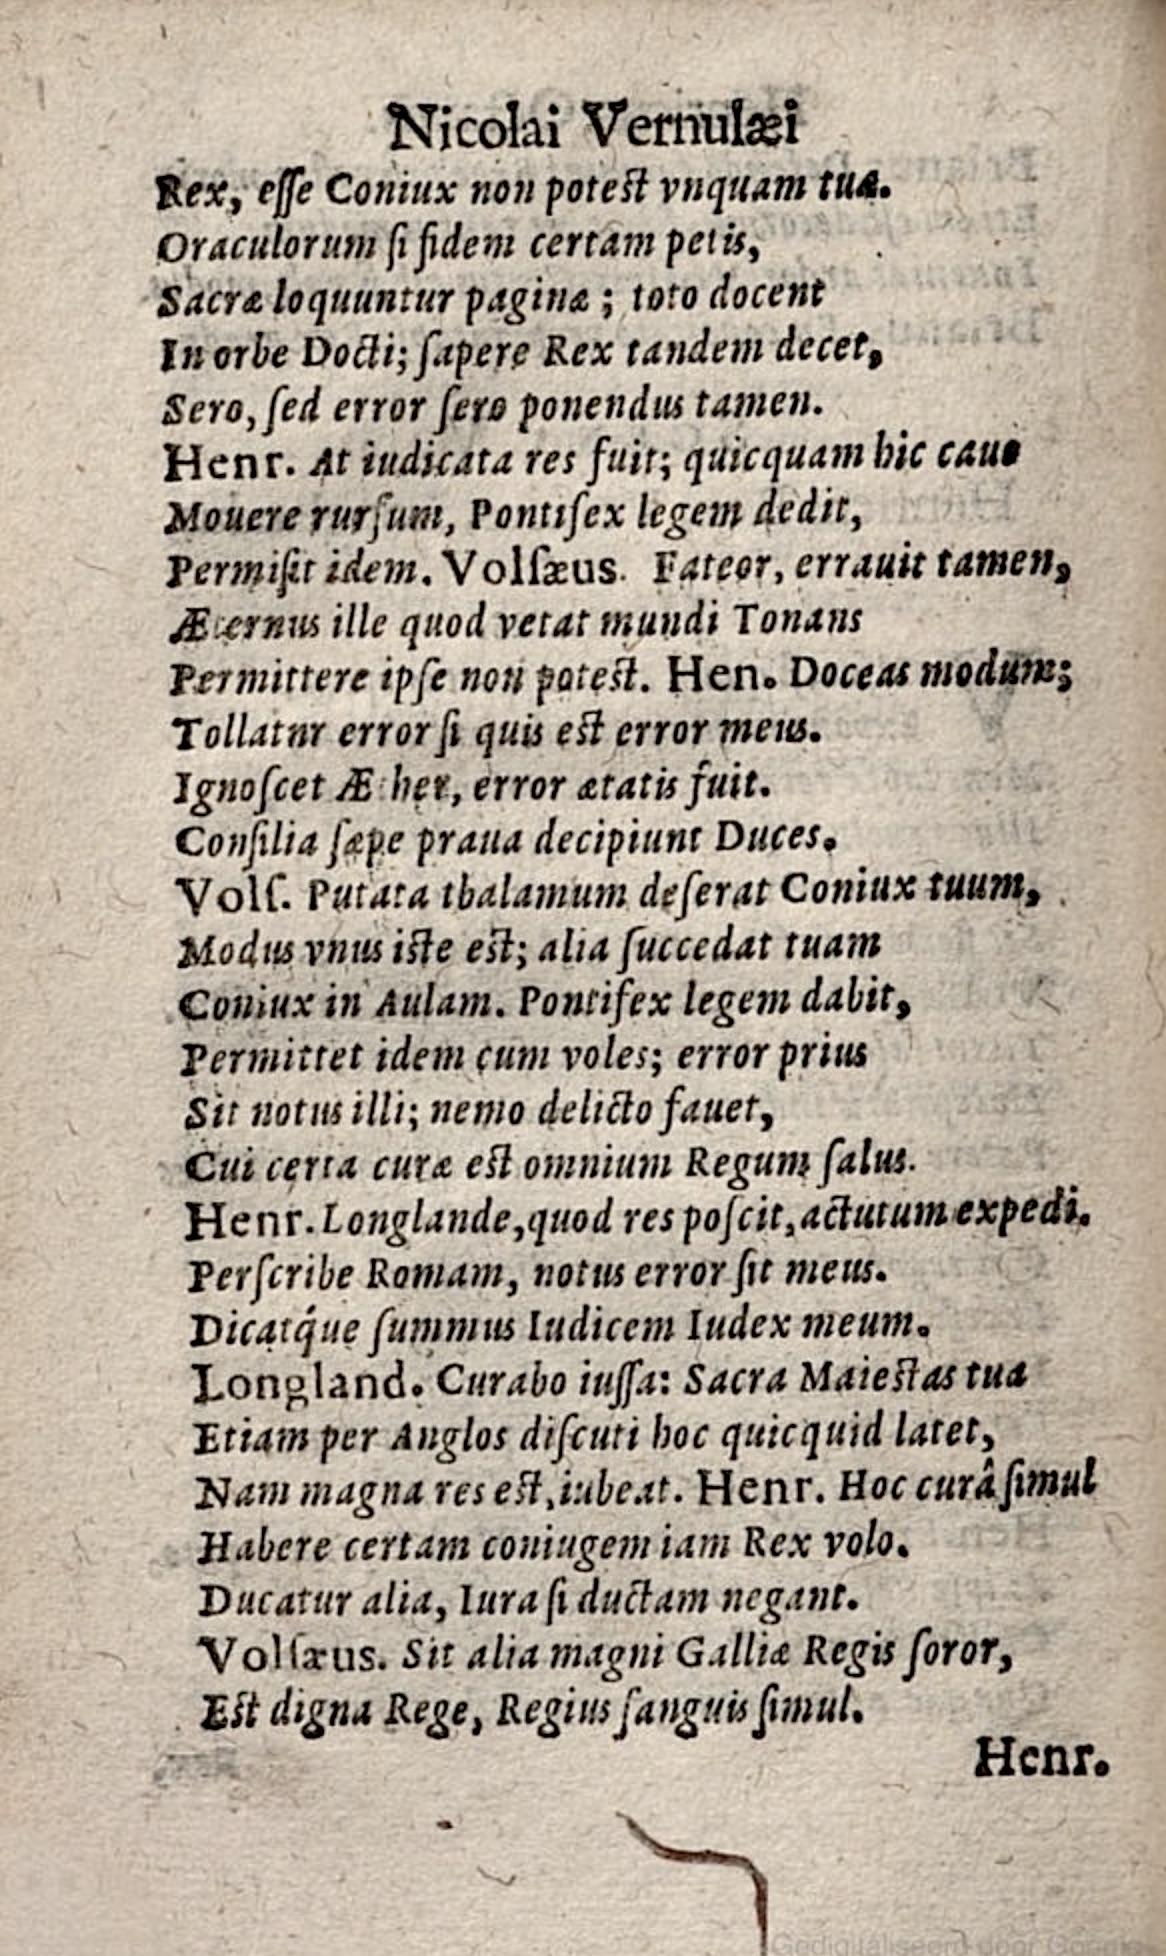 Nicolai Vernulæi
Rex, eſſe Coniux non poteſt vnquam tua.
Oraculorum ſi fidem certam petis,
Sacræ loquuntur paginæ; toto docent
In orbe Docti; ſapere Rex tandem decet,
Sero, ſed error ſero ponendus tamen.
Henr. At iudicata res fuit; quicquam hic caue
Mouere rurſum, Pontifex legem dedit,
Permiſit idem. Volſæus. Fateor, errauit tamen,
Æternus ille quod vetat mundi Tonans
Permittere ipſe non poteſt. Hen. Doceas modum;
Tollatur error ſi quis eſt error meus.
Ignoſcet Æther, error ætatis fuit.
Conſilia ſæpe praua decipiunt Duces.
Volſ. Putata thalamum deſerat Coniux tuum,
Modus vnus iſte eſt; alia ſuccedat tuam
Coniux in Aulam. Pontifex legem dabit,
Permittet idem cum voles; error prius
Sit notus illi; nemo delicto fauet,
Cui certa curæ eſt omnium Regum ſalus.
Henr. Longlande, quod res poſcit, actutum expedi.
Perſcribe Romam, notus error ſit meus.
Dicatq́ue ſummus Iudicem Iudex meum.
Longland. Curabo iuſſa: Sacra Maieſtas tua
Etiam per Anglos diſcuti hoc quicquid latet,
Nam magna res eſt, iubeat. Henr. Hoc curâ ſimul
Habere certam coniugem iam Rex volo.
Ducatur alia, Iura ſi ductam negant.
Volſæus. Sit alia magni Galliæ Regis ſoror,
Eſt digna Rege, Regius ſanguis ſimul.
Henr.